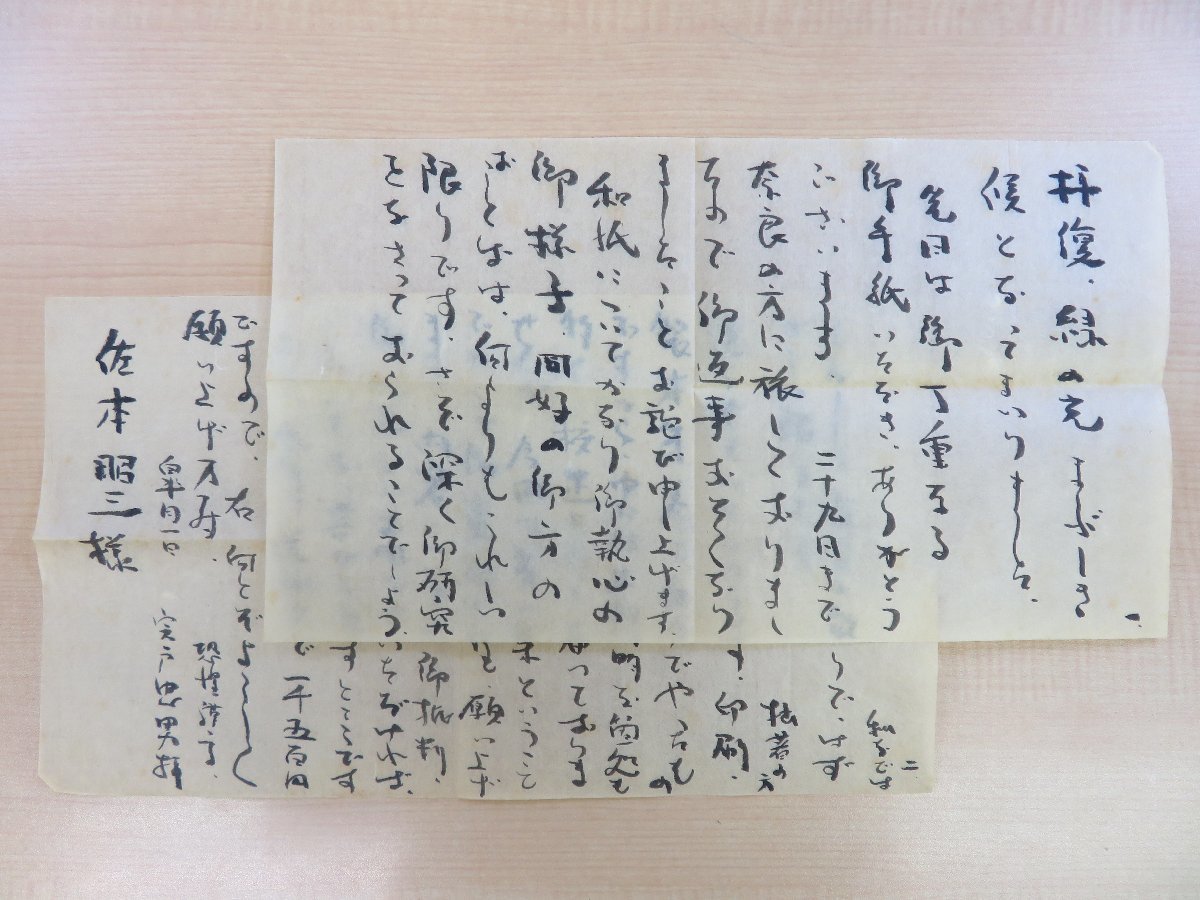 一
拝復、緑の光まぶしき
候となってまいりました。
先日は御丁重なる
御手紙いただき、ありがとう
ございます、二十九日まで
奈良の方に旅しておりまし
たので御返事おそくなり
ましたことお詫び申し上げます、
和紙についてかなり御執心の
御様子 同好の御方の
ほしとは、何よりもうれしい
限りです、さぞ深く御研究
をなさっておられることでしょう、
二
私などは
りで、はず
拙著の方
す、印刷、
でやったもの
明な箇処も
願ってありま
ということ
願い上げ
御批判、
いただければ、
すところです
で 一千五百円
ですので、右 何とぞよろしく
願い上げ万す、
恐惶謹言、
皐月一日
宍戸忠男拝
佐本昭三様